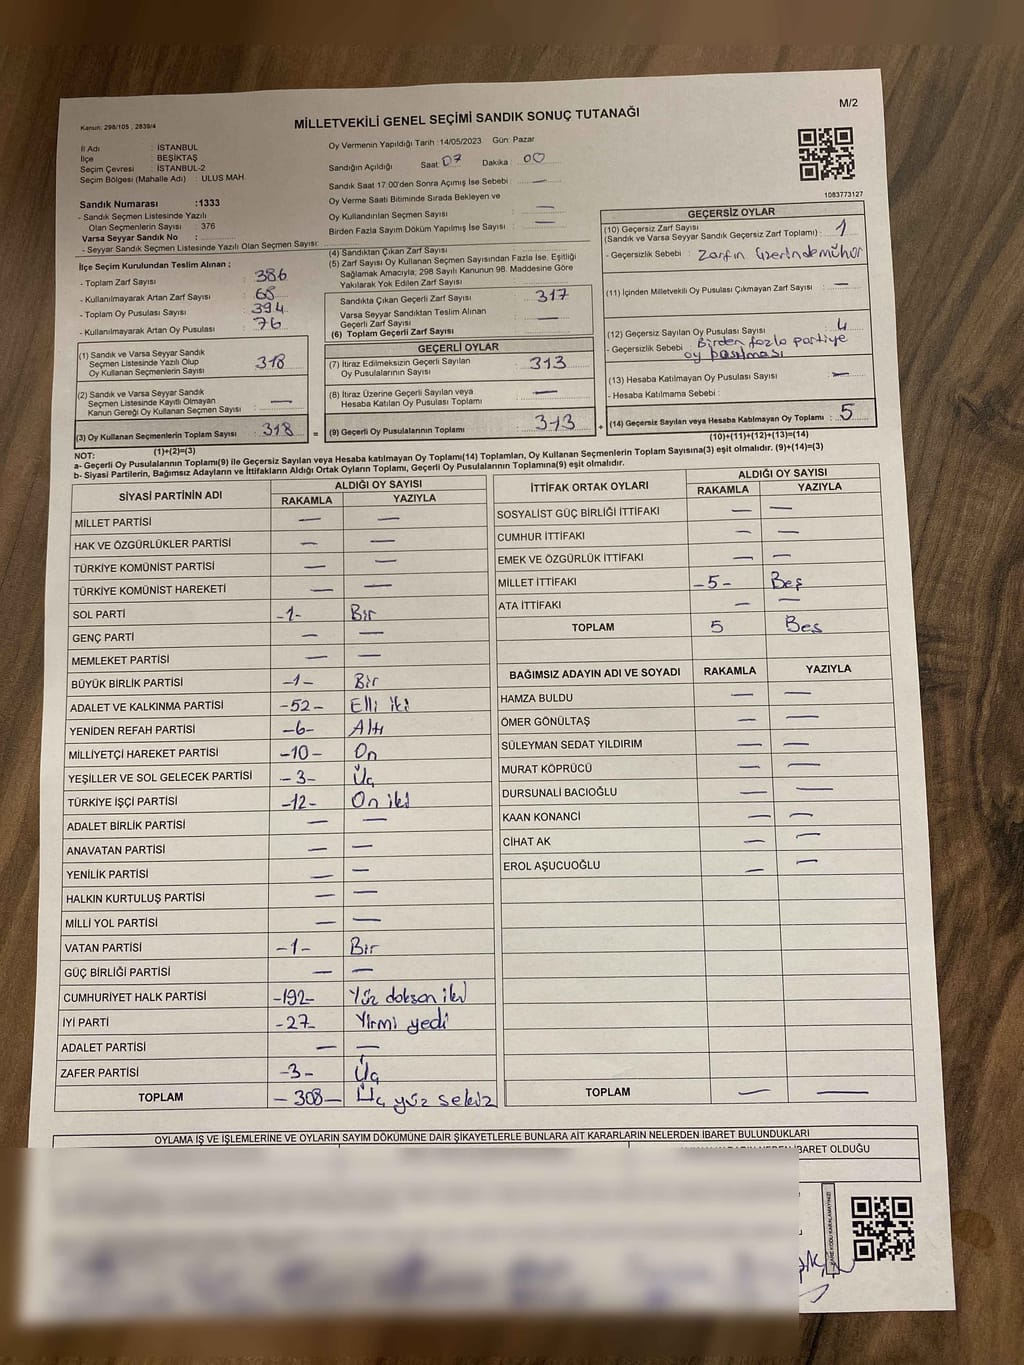 Kanun: 298/105 , 2839/4
M/2
MİLLETVEKİLİ GENEL SEÇİMİ SANDIK SONUÇ TUTANAĞI
İl Adı : İSTANBUL
İlçe : BEŞİKTAŞ
Seçim Çevresi : İSTANBUL-2
Seçim Bölgesi (Mahalle Adı) : ULUS MAH.
Sandık Numarası :1333
- Sandık Seçmen Listesinde Yazılı
Olan Seçmenlerin Sayısı : 376
Varsa Seyyar Sandık No :
- Seyyar Sandık Seçmen Listesinde Yazılı Olan Seçmen Sayısı:
Oy Vermenin Yapıldığı Tarih :14/05/2023 Gün: Pazar
Sandığın Açıldığı Saat: 07 Dakika : 00
Sandık Saat 17:00'den Sonra Açımış İse Sebebi : —
Oy Verme Saati Bitiminde Sırada Bekleyen ve
Oy Kullandırılan Seçmen Sayısı : —
Birden Fazla Sayım Döküm Yapılmış İse Sayısı : —
1083773127
İlçe Seçim Kurulundan Teslim Alınan ;
- Toplam Zarf Sayısı : 386
- Kullanılmayarak Artan Zarf Sayısı : 68
- Toplam Oy Pusulası Sayısı : 394
- Kullanılmayarak Artan Oy Pusulası : 76
(1) Sandık ve Varsa Seyyar Sandık
Seçmen Listesinde Yazılı Olup
Oy Kullanan Seçmenlerin Sayısı : 318
(2) Sandık ve Varsa Seyyar Sandık
Seçmen Listesinde Kayıtlı Olmayan
Kanun Gereği Oy Kullanan Seçmen Sayısı : —
(3) Oy Kullanan Seçmenlerin Toplam Sayısı : 318
(1)+(2)=(3)
(4) Sandıktan Çıkan Zarf Sayısı
(5) Zarf Sayısı Oy Kullanan Seçmen Sayısından Fazla İse, Eşitliği
Sağlamak Amacıyla; 298 Sayılı Kanunun 98. Maddesine Göre
Yakılarak Yok Edilen Zarf Sayısı :
Sandıkta Çıkan Geçerli Zarf Sayısı : 317
Varsa Seyyar Sandıktan Teslim Alınan
Geçerli Zarf Sayısı : —
(6) Toplam Geçerli Zarf Sayısı
GEÇERLİ OYLAR
(7) İtiraz Edilmeksizin Geçerli Sayılan
Oy Pusulalarının Sayısı : 313
(8) İtiraz Üzerine Geçerli Sayılan veya
Hesaba Katılan Oy Pusulası Toplamı : —
= (9) Geçerli Oy Pusulalarının Toplamı : 313
GEÇERSİZ OYLAR
(10) Geçersiz Zarf Sayısı
(Sandık ve Varsa Seyyar Sandık Geçersiz Zarf Toplamı) : 1
- Geçersizlik Sebebi : Zarfın Üzerinde mühür
(11) İçinden Milletvekili Oy Pusulası Çıkmayan Zarf Sayısı : —
(12) Geçersiz Sayılan Oy Pusulası Sayısı : 4
- Geçersizlik Sebebi : Birden fazla partiye
oy basılması
(13) Hesaba Katılmayan Oy Pusulası Sayısı : —
- Hesaba Katılmama Sebebi :
+ (14) Geçersiz Sayılan veya Hesaba Katılmayan Oy Toplamı : 5
(10)+(11)+(12)+(13)=(14)
NOT:
a- Geçerli Oy Pusulalarının Toplamı(9) ile Geçersiz Sayılan veya Hesaba katılmayan Oy Toplamı(14) Toplamları, Oy Kullanan Seçmenlerin Toplam Sayısına(3) eşit olmalıdır. (9)+(14)=(3)
b- Siyasi Partilerin, Bağımsız Adayların ve İttifakların Aldığı Ortak Oyların Toplamı, Geçerli Oy Pusulalarının Toplamına(9) eşit olmalıdır.
SİYASİ PARTİNİN ADI ALDIĞI OY SAYISI
RAKAMLA YAZIYLA
MİLLET PARTİSİ — —
HAK VE ÖZGÜRLÜKLER PARTİSİ — —
TÜRKİYE KOMÜNİST PARTİSİ — —
TÜRKİYE KOMÜNİST HAREKETİ — —
SOL PARTİ -1- Bir
GENÇ PARTİ — —
MEMLEKET PARTİSİ — —
BÜYÜK BİRLİK PARTİSİ -1- Bir
ADALET VE KALKINMA PARTİSİ -52- Elli iki
YENİDEN REFAH PARTİSİ -6- Altı
MİLLİYETÇİ HAREKET PARTİSİ -10- On
YEŞİLLER VE SOL GELECEK PARTİSİ -3- Üç
TÜRKİYE İŞÇİ PARTİSİ -12- On iki
ADALET BİRLİK PARTİSİ — —
ANAVATAN PARTİSİ — —
YENİLİK PARTİSİ — —
HALKIN KURTULUŞ PARTİSİ — —
MİLLİ YOL PARTİSİ — —
VATAN PARTİSİ -1- Bir
GÜÇ BİRLİĞİ PARTİSİ — —
CUMHURİYET HALK PARTİSİ -192- Yüz doksan iki
İYİ PARTİ -27- Yirmi yedi
ADALET PARTİSİ — —
ZAFER PARTİSİ -3- Üç
TOPLAM -308- Üç yüz sekiz
İTTİFAK ORTAK OYLARI ALDIĞI OY SAYISI
RAKAMLA YAZIYLA
SOSYALİST GÜÇ BİRLİĞİ İTTİFAKI — —
CUMHUR İTTİFAKI — —
EMEK VE ÖZGÜRLÜK İTTİFAKI — —
MİLLET İTTİFAKI -5- Beş
ATA İTTİFAKI — —
TOPLAM 5 Bes
BAĞIMSIZ ADAYIN ADI VE SOYADI RAKAMLA YAZIYLA
HAMZA BULDU — —
ÖMER GÖNÜLTAŞ — —
SÜLEYMAN SEDAT YILDIRIM — —
MURAT KÖPRÜCÜ — —
DURSUNALİ BACIOĞLU — —
KAAN KONANCİ — —
CİHAT AK — —
EROL AŞUCUOĞLU — —
TOPLAM — —
OYLAMA İŞ VE İŞLEMLERİNE VE OYLARIN SAYIM DÖKÜMÜNE DAİR ŞİKAYETLERLE BUNLARA AİT KARARLARIN NELERDEN İBARET BULUNDUKLARI
İBARET OLDUĞU